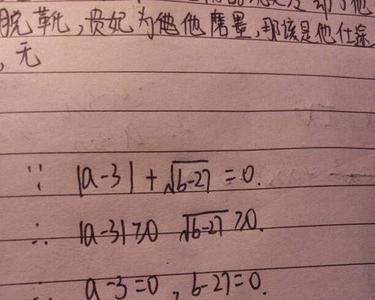 脱靴,贵妃为他他磨墨,那该是他仕途
,无
∵ |a-3| + √b-27 = 0.
∴ |a-3| ≥0 √b-27 ≥0.
∴ a-3=0, b-27=0.